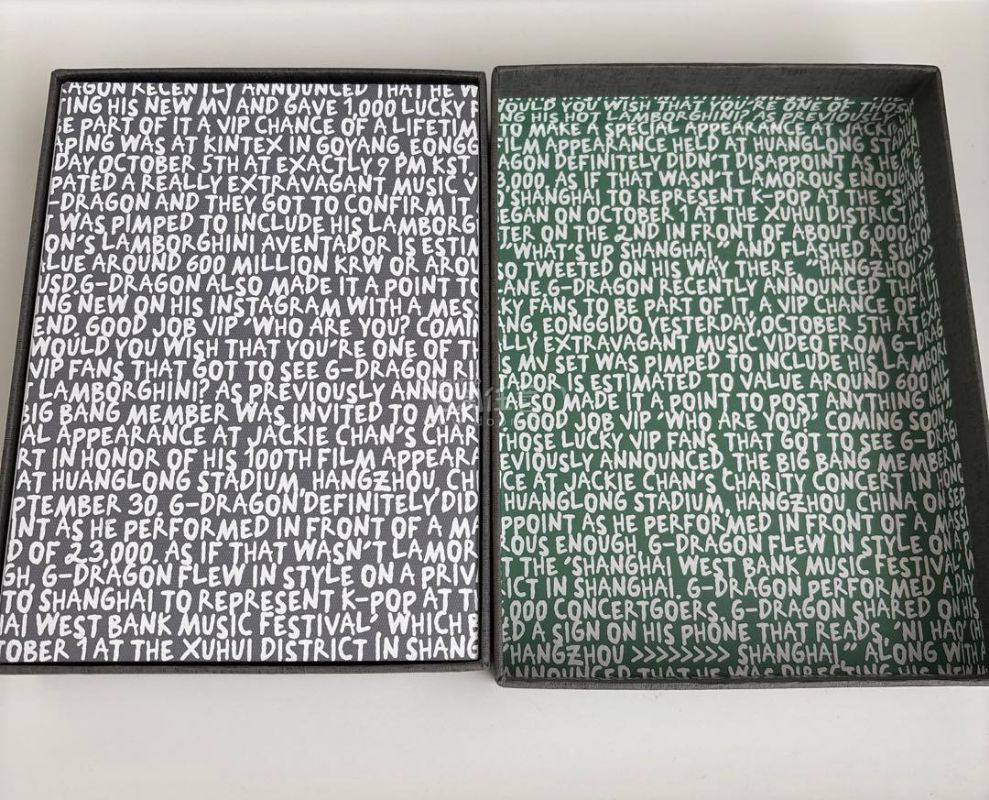 AGON RECENTLY ANNOUNCED THAT HE W
TING HIS NEW MV AND GAVE 1,000 LUCKY F
E PART OF IT A VIP CHANCE OF A LIFETIM
APING WAS AT KINTEX IN GOYANG, EONGG
DAY,OCTOBER 5TH AT EXACTLY 9 PM KST
PATED A REALLY EXTRAVAGANT MUSIC V
-DRAGON AND THEY GOT TO CONFIRM IT
WAS PIMPED TO INCLUDE HIS LAMBORG
ON'S LAMBORGHINI AVENTADOR IS ESTIM
LUE AROUND 600 MILLION KRW OR AROU
USD.G-DRAGON ALSO MADE IT A POINT TO
NG NEW ON HIS INSTAGRAM WITH A MESS
END. GOOD JOB VIP 'WHO ARE YOU?' COMIN
WOULD YOU WISH THAT YOU'RE ONE OF TH
VIP FANS THAT GOT TO SEE G-DRAGON RI
LAMBORGHINI? AS PREVIOUSLY ANNO
BIG BANG MEMBER WAS INVITED TO MAK
AL APPEARANCE AT JACKIE CHAN'S CHAR
RT IN HONOR OF HIS 100TH FILM APPEARA
AT HUANGLONG STADIUM, HANGZHOU, CH
PTEMBER 30. G-DRAGON DEFINITELY DID
INT AS HE PERFORMED IN FRONT OF A MA
D OF 23,000. AS IF THAT WASN'T LAMOR
GH, G-DRAGON FLEW IN STYLE ON A PRIV
TO SHANGHAI TO REPRESENT K-POP AT T
HAI WEST BANK MUSIC FESTIVAL' WHICH B
TOBER 1 AT THE XUHUI DISTRICT IN SHANG
WOULD YOU WISH THAT YOU'RE ONE OF THOS
NG HIS HOT LAMBORGHINI? AS PREVIOUSLY
TO MAKE A SPECIAL APPEARANCE AT JACKI
ILM APPEARANCE HELD AT HUANGLONG STADIUM
AGON DEFINITELY DIDN'T DISAPPOINT AS HE PER
3,000. AS IF THAT WASN'T LAMOROUS ENOUGH, G
O SHANGHAI TO REPRESENT K-POP AT THE 'SHANG
EGAN ON OCTOBER 1 AT THE XUHUI DISTRICT IN SH
TER ON THE 2ND IN FRONT OF ABOUT 6,000 CON
"WHAT'S UP SHANGHAI" AND FLASHED A SIGN ON
SO TWEETED ON HIS WAY THERE, "HANGZHOU >>>
ANE.G-DRAGON RECENTLY ANNOUNCED THAT HE
KY FANS TO BE PART OF IT A VIP CHANCE OF A LI
ANG, EONGGIDO YESTERDAY,OCTOBER 5TH AT EXA
LLY EXTRAVAGANT MUSIC VIDEO FROM G-DRAG
S MV SET WAS PIMPED TO INCLUDE HIS LAMBOR
TADOR IS ESTIMATED TO VALUE AROUND 600 MIL
ALSO MADE IT A POINT TO POST ANYTHING NEW
GOOD JOB VIP 'WHO ARE YOU?' COMING SOON
THOSE LUCKY VIP FANS THAT GOT TO SEE G-DRAG
EVIOUSLY ANNOUNCED, THE BIG BANG MEMBER W
CE AT JACKIE CHAN'S CHARITY CONCERT IN HONO
HUANGLONG STADIUM, HANGZHOU, CHINA ON SEP
PPOINT AS HE PERFORMED IN FRONT OF A MASSI
ROUS ENOUGH, G-DRAGON FLEW IN STYLE ON A P
T THE 'SHANGHAI WEST BANK MUSIC FESTIVAL' W
ICT IN SHANGHAI. G-DRAGON PERFORMED A DAY
,000 CONCERTGOERS. G-DRAGON SHARED ON HIS
ED A SIGN ON HIS PHONE THAT READS, 'NI HAO' (H
HANGZHOU >>>>>>>> SHANGHAI" ALONG WITH A
NNOUNCED THAT HE WAS DIRECTING HIS NEW M